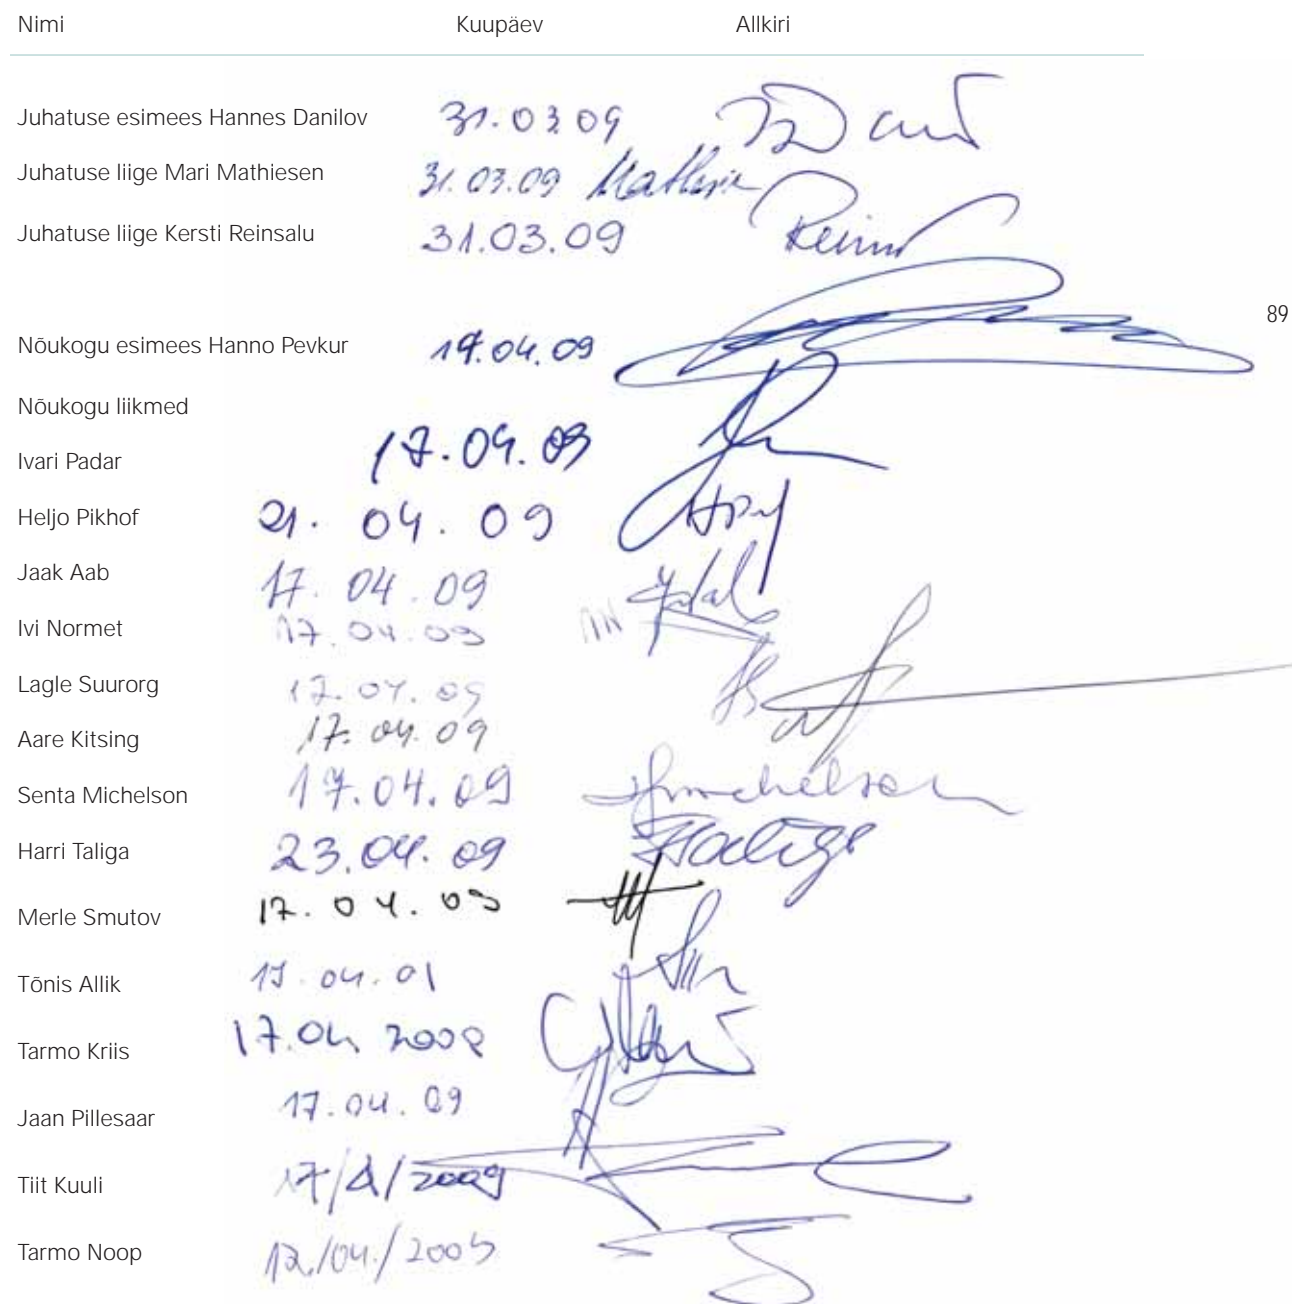 Nimi Kuupäev Allkiri
Juhatuse esimees Hannes Danilov 31.03.09
Juhatuse liige Mari Mathiesen 31.03.09
Juhatuse liige Kersti Reinsalu 31.03.09
89
Nõukogu esimees Hanno Pevkur 17.04.09
Nõukogu liikmed
Ivari Padar 17.04.09
Heljo Pikhof 21. 04. 09
Jaak Aab 17. 04. 09
Ivi Normet 17. 04. 09
Lagle Suurorg 17. 04. 09
Aare Kitsing 17. 04. 09
Senta Michelson 17.04.09
Harri Taliga 23.04.09
Merle Smutov 17.04.09
Tõnis Allik 17.04.
Tarmo Kriis 17.04
Jaan Pillesaar 17.04.09
Tiit Kuuli 17/4/2009
Tarmo Noop